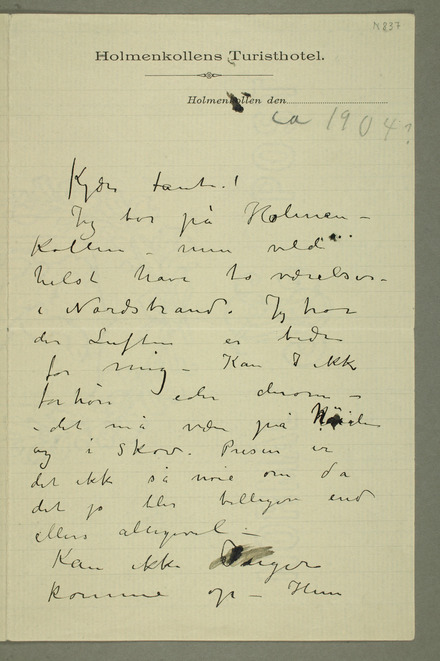 N 837
Holmenkollens Turisthotel.
Holmenkollen den
ca 1904?
Kjære tante!
Jeg bor på Holmen-
kollen – men vilde
helst have to værelser
i Nordstrand. Jeg tror
der Luften er bedre
for mig – Kan I ikke
forhøre eder derom –
– det må være på Høiden
og i Skov. Prisen er
det ikke så nøie om da
det jo blir billigere end
ellers alligevel –
Kan ikke Inger
komme op – Hun